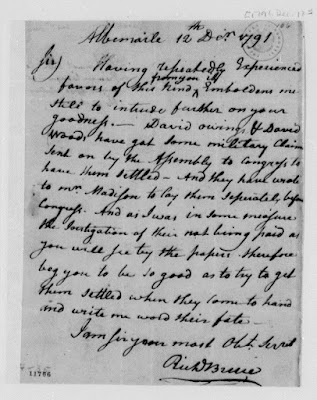 Albemarle 12th Decr. 1791
Sir)
Having repeatedly Experienced
favors of this Kind from you it Emboldens me
still to intrude further on your
goodness — David owings & David
Woods have got some military Claims
sent on by the Assembly to Congress to
have them settled — And they have wrote
to mr. Madison to lay them Seperately before
Congress. And as I was in some measure
the Instigation of their not being paid as
you will see by the papers therefore
beg you to be so good as to try to get
them settled when they come to hand
and write me word their fate —
I am Sir your most Obt. Servt
Richd
11786